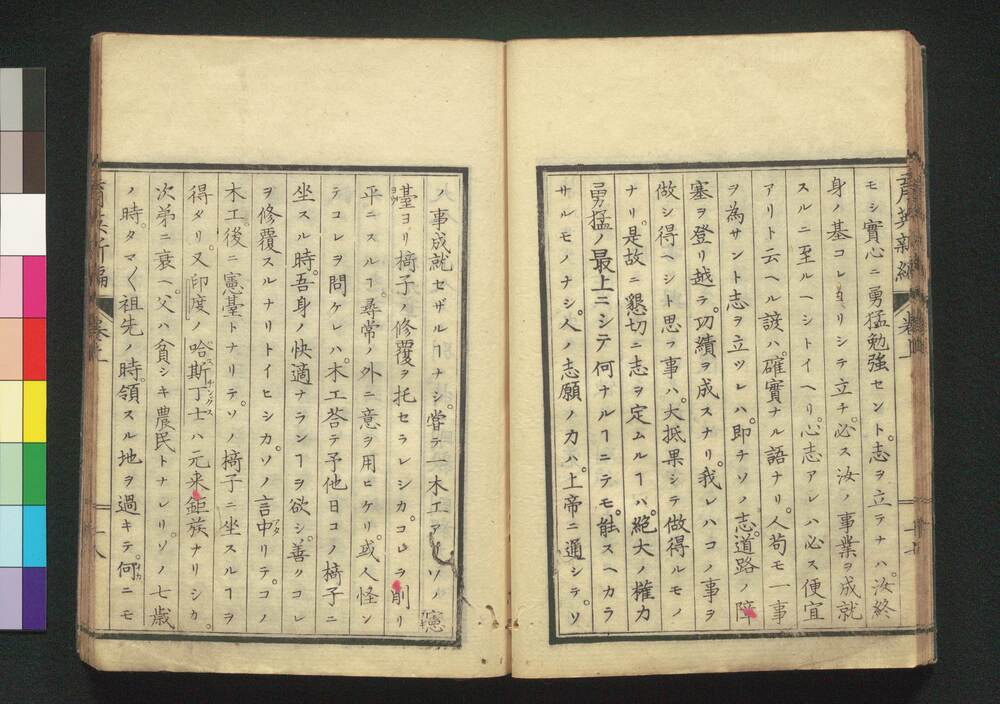 育英新編 巻四上
モシ實心ニ勇猛勉強セント。志ヲ立テナハ。汝終
身ノ基コレヨリシテ立チ。必ス汝ノ事業ヲ成就
スルニ至ルヘシトイヘリ。心志アレハ必ス便宜
アリト云ヘル諺ハ。確實ナル語ナリ。人苟モ一事
ヲ為サント志ヲ立ツレハ。即チソノ志。道路ノ障
塞ヲ登リ越ヘ。功績ヲ成スナリ。我レハコノ事ヲ
做シ得ヘシト思フ事ハ。大抵果シテ做得ルモノ
ナリ。是故ニ懇切ニ志ヲ定ムルヿハ。絶大ノ権カ
勇猛ノ最上ニシテ何ナルヿニテモ。能スヘカラ
サルモノナシ。人ノ志願ノカハ。上帝ニ通シテ。ソ
ノ事成就セザルヿナシ。嘗テ一木工アリ。ソノ憲
臺ヨリ椅子ノ修覆ヲ托セラレシカ。コレヲ削リ
平ニスルヿ。尋常ノ外ニ意ヲ用ヒケリ。或人怪ン
テコレヲ問ケレハ。木工荅テ予他日コノ椅子ニ
坐スル時。吾身ノ快適ナランヿヲ欲シ。善クコレ
ヲ修覆スルナリトイヒシカ。ソノ言中リテ。コノ
木工後ニ憲臺トナリテ。ソノ椅子ニ坐スルヿヲ
得タリ。又印度ノ哈斯丁士ハ元来鉅族ナリシカ。
次第ニ衰ヘ。父ハ貧シキ農民トナレリ。ソノ七歳
ノ時。タマ〱祖先ノ時。領スル地ヲ過キテ。何ニモ
十八